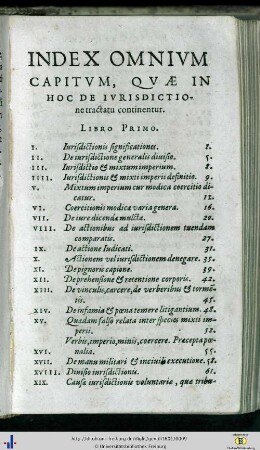 INDEX OMNIVM
CAPITVM, QVÆ IN
HOC DE IVRISDICTIO-
ne tractatu continentur.
LIBRO PRIMO.
I. Iurisdictionis significationes. 1.
II. De iurisdictione generalis diuisio. 5.
III. Iurisdictio & mixtum imperium. 8.
IIII. Iurisdictionis & mixti imperii definitio. 9.
V. Mixtum imperium cur modica coercitio di-
catur. 12.
VI. Coercitionis modicæ varia genera. 16.
VII. De iure dicenda mulcta. 20.
VIII. De actionibus ad iurisdictionem tuendam
comparatis. 27.
IX. De actione Iudicati. 31.
X. Actionem vel iurisdictionem denegare. 35.
XI. De pignoris capione. 39.
XII. De prehensione & retentione corporis. 42.
XIII. De vinculis, carcere, de verberibus & tormé-
tis. 45.
XIV. De infamia & pœna temere litigantium. 48.
XV. Quædam falsò relata inter species mixti im-
perii. 52.
Verbis, imperio, minis, coercere. Præcepta pœ-
nalia. 55.
XVI.
XVII. De manu militari & inciuili executione. 58.
XVIII. Diuisio iurisdictionis. 61.
XIX. Causæ iurisdictionis voluntariæ, quæ tribu-
© Universitätsbibliothek Freiburg